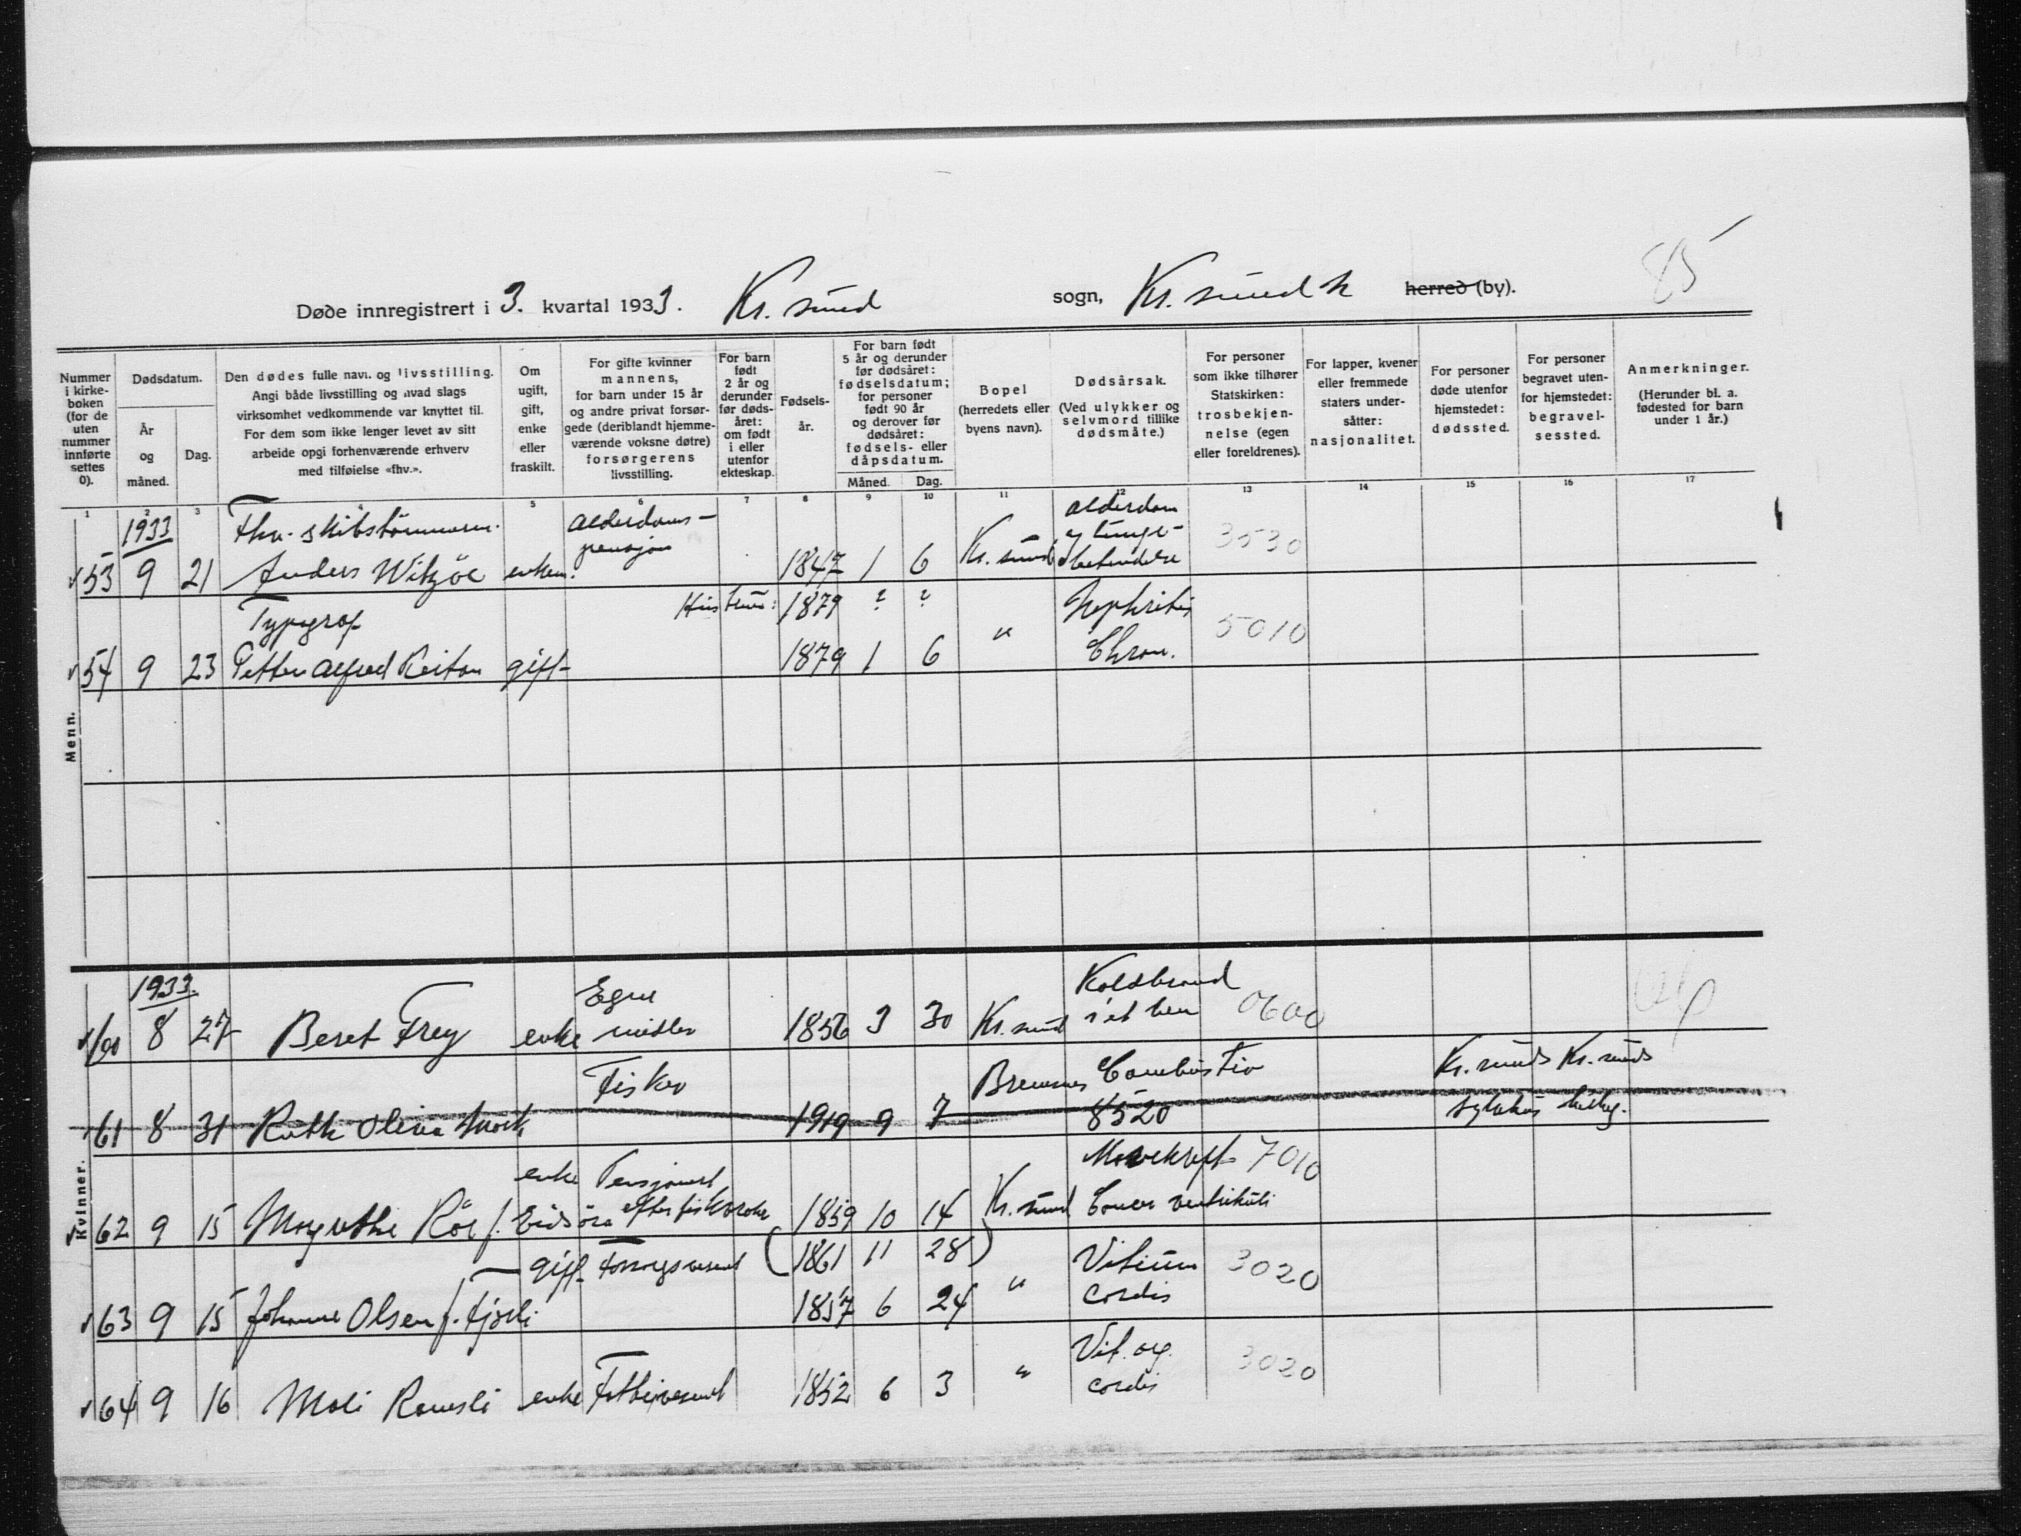 85
Døde innregistrert i 3. kvartal 1933. Kr. sund sogn, Kr. sund N herred (by).
Nummer i kirkeboken (for de uten nummer innførte settes 0).
Dødsdatum.
År og måned.
Dag.
Den dødes fulle navn og livsstilling.
Angi både livsstilling og hvad slags
virksomhet vedkommende var knyttet til.
For dem som ikke lenger levet av sitt
arbeide opgi forhenværende erhverv
med tilføielse «fhv.».
Om ugift, gift, enke eller fraskilt.
For gifte kvinner mannens, for barn under 15 år og andre privat forsørgede (deriblandt hjemmeværende voksne døtre) forsørgerens livsstilling.
For barn født 2 år og derunder før dødsåret: om født i eller utenfor ekteskap.
Fødselsår.
For barn født 5 år og derunder før dødsåret: fødselsdatum; for personer født 90 år og derover før dødsåret: fødsels- eller dåpsdatum.
Måned. Dag.
Bopel (herredets eller byens navn).
Dødsårsak. (Ved ulykker og selvmord tillike dødsmåte.)
For personer som ikke tilhører Statskirken: trosbekjennelse (egen eller foreldrenes).
For lapper, kvener eller fremmede staters undersåtter: nasjonalitet.
For personer døde utenfor hjemstedet: dødssted.
For personer begravet utenfor hjemstedet: begravelsessted.
Anmerkninger. (Herunder bl. a. fødested for barn under 1 år.)
1 2 3 5 6 7 8 9 10 11 12 13 14 15 16 17
Menn.
1933 Fhv. skibstømmerm. alderdoms- alderdom
pensjon 3530
53 9 21 Anders Witzøe enkem. 1847 1 6 Kr. sund
Typograf Hustru: 1879 ? ? Nephritis
5010
54 9 23 Petter Alfred Reitan gift 1879 1 6 " Chron.
Kvinner.
1933. Egne Koldbrand
60 8 27 Beret Frey enke midler 1856 3 30 Kr. sund i et ben 0600
Fisker Bremsnes Combustio Kr. sunds Kr. sunds
61 8 31 Ruth Olivia 1919 9 7 8520 sykehus
enke Pensjonert Mavekreft 7010
62 9 15 Margrethe Røe f. Eidsøra efter 1859 10 14 Kr. sund Cancer ventrikuli
gift (1861 11 28) Vitium 3020
63 9 15 Johanne Olsen f. Fjørli 1857 6 24 " cordis
Vit. org. 3020
64 9 16 Mali Ramsli enke 1852 6 3 " cordis